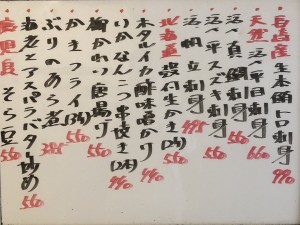 長崎産 生本鮪トロ刺身 990
天然 活〆平目刺身 660
活〆真鯛刺身 560
活〆平スズキ刺身 560
活〆帆立刺身 495
北海道 殻付生かき(2ヶ) 560
ホタルイカ酢味噌かけ 440
いかなんこつ串焼き(2本) 440
柳かれい唐揚げ 560
かきフライ(3ヶ) 560
ぶりのあら煮 385
海老とアスパラバター炒め 560
鹿児島 そら豆 560